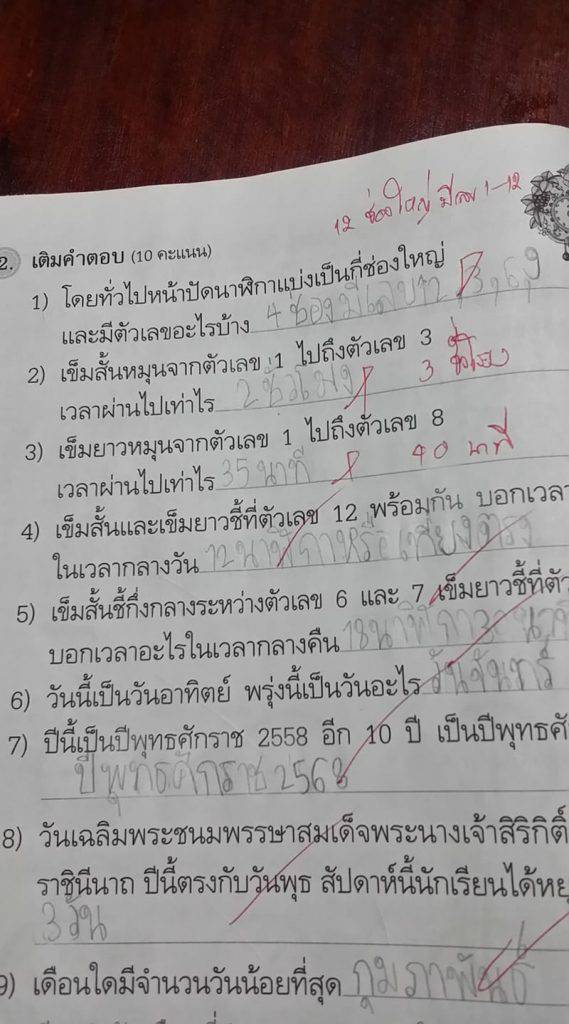 12 ช่องใหญ่ มีเลข 1-12
2. เติมคำตอบ (10 คะแนน)
1) โดยทั่วไปหน้าปัดนาฬิกาแบ่งเป็นกี่ช่องใหญ่
และมีตัวเลขอะไรบ้าง 4 ช่องมีเลข 12, 3, 6, 9
2) เข็มสั้นหมุนจากตัวเลข 1 ไปถึงตัวเลข 3
เวลาผ่านไปเท่าไร 2 ชั่วโมง 3 ชั่วโมง
3) เข็มยาวหมุนจากตัวเลข 1 ไปถึงตัวเลข 8
เวลาผ่านไปเท่าไร 35 นาที 40 นาที
4) เข็มสั้นและเข็มยาวชี้ที่ตัวเลข 12 พร้อมกัน บอกเวลา
ในเวลากลางวัน 12 นาฬิกาหรือเที่ยงตรง
5) เข็มสั้นชี้กึ่งกลางระหว่างตัวเลข 6 และ 7 เข็มยาวชี้ที่ตัว
บอกเวลาอะไรในเวลากลางคืน 18 นาฬิกา
6) วันนี้เป็นวันอาทิตย์ พรุ่งนี้เป็นวันอะไร วันจันทร์
7) ปีนี้เป็นปีพุทธศักราช 2558 อีก 10 ปี เป็นปีพุทธศั
ปีพุทธศักราช 2568
8) วันเฉลิมพระชนมพรรษาสมเด็จพระนางเจ้าสิริกิติ์
ราชินีนาถ ปีนี้ตรงกับวันพุธ สัปดาห์นี้นักเรียนได้หย
3 วัน
9) เดือนใดมีจำนวนวันน้อยที่สุด กุมภาพันธ์